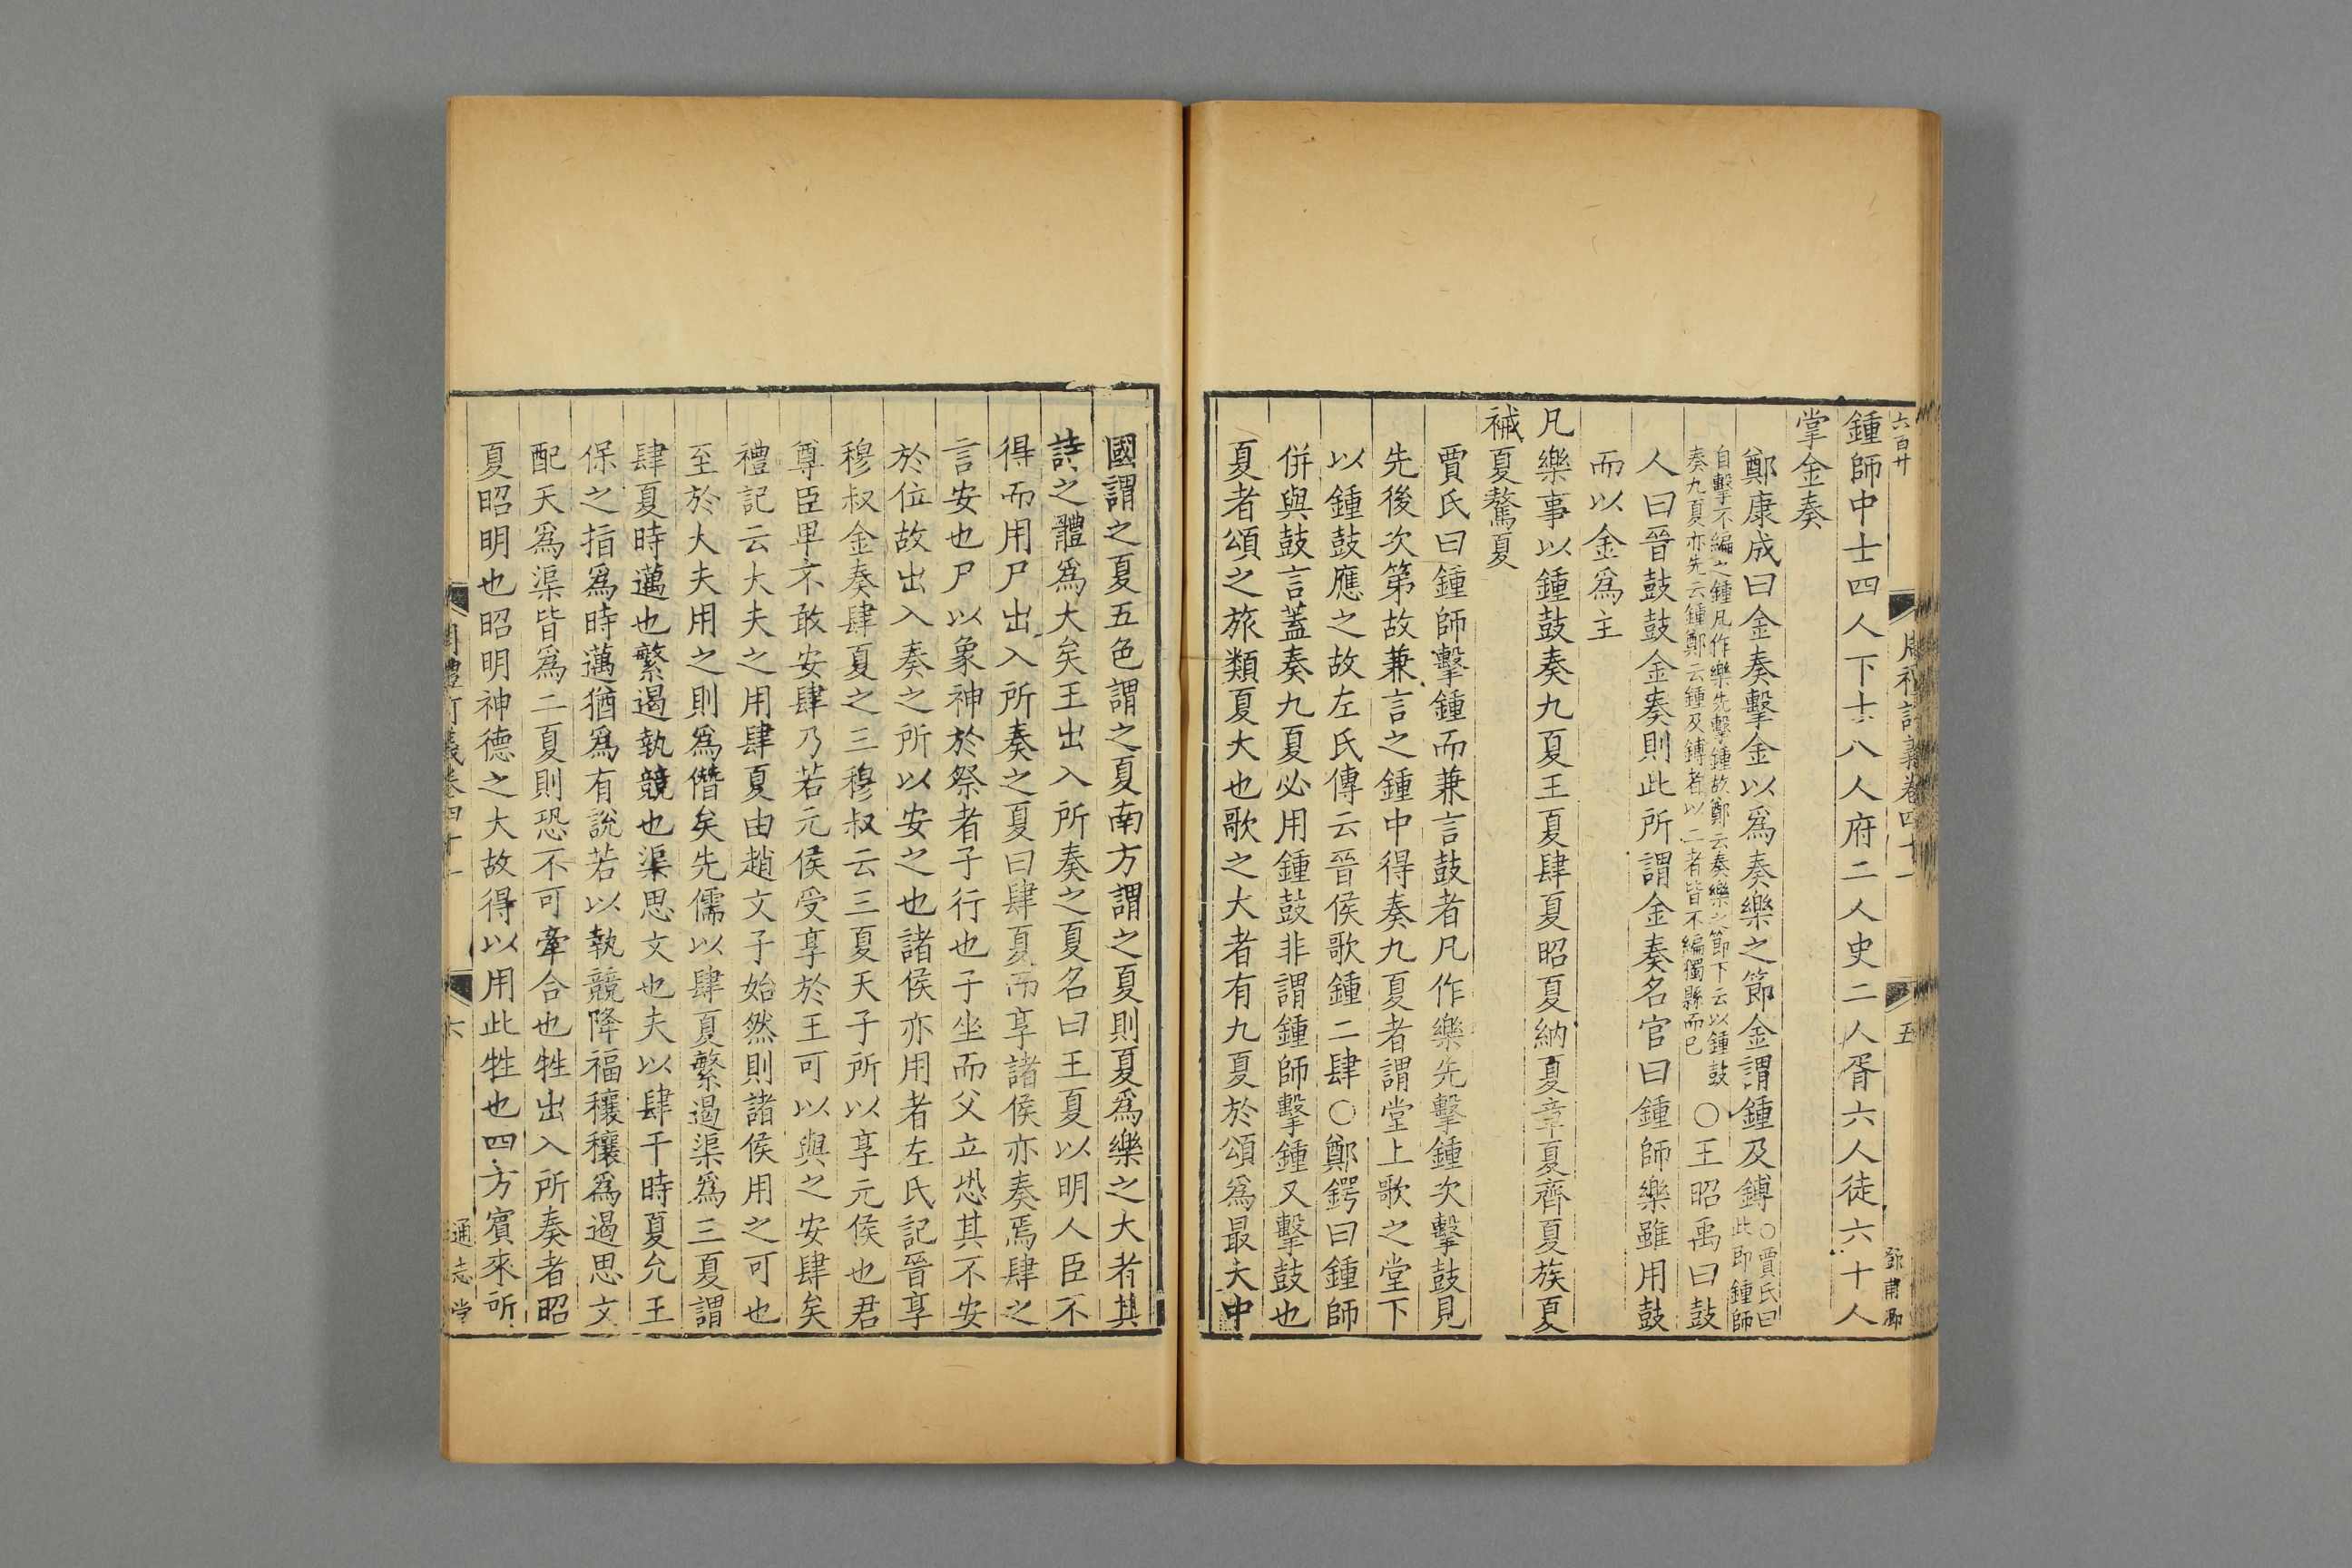 六百廿
五
鍾師中士四人下士八人府二人史二人胥六人徒六十人
掌金奏
鄭康成曰金奏擊金以爲奏樂之節金謂鍾及鎛○賈氏曰此即鍾師
自擊不編之鍾凡作樂先擊鍾故鄭云奏樂之節下云以鍾鼓奏九夏亦先云鍾鄭云鍾及鎛者以二者皆不編獨縣而已○王昭禹曰鼓
人曰晉鼓鼓金奏則此所謂金奏名官曰鍾師樂雖用鼓
而以金爲主
凡樂事以鍾鼓奏九夏王夏肆夏昭夏納夏章夏齊夏族夏
祴夏驁夏
賈氏曰鍾師擊鍾而兼言鼓者凡作樂先擊鍾次擊鼓見
先後次第故兼言之鍾中得奏九夏者謂堂上歌之堂下
以鍾鼓應之故左氏傳云晉侯歌鍾二肆○鄭鍔曰鍾師
併與鼓言蓋奏九夏必用鍾鼓非謂鍾師擊鍾又擊鼓也
夏者頌之旅類夏大也歌之大者有九夏於頌爲最大中
國謂之夏五色謂之夏南方謂之夏則夏爲樂之大者其
詩之體爲大矣王出入所奏之夏名曰王夏以明人臣不
得而用尸出入所奏之夏曰肆夏而享諸侯亦奏焉肆之
言安也尸以象神於祭者子行也子坐而父立恐其不安
於位故出入奏之所以安之也諸侯亦用者左氏記晉享
穆叔金奏肆夏之三穆叔云三夏天子所以享元侯也君
尊臣卑不敢安肆乃若元侯受享於王可以與之安肆矣
禮記云大夫之用肆夏由趙文子始然則諸侯用之可也
至於大夫用之則爲僭矣先儒以肆夏繁遏渠爲三夏謂
肆夏時邁也繁遏執競也渠思文也夫以肆于時夏允王
保之指爲時邁猶爲有說若以執競降福穰穰爲遏思文
配天爲渠皆爲二夏則恐不可牽合也牲出入所奏者昭
夏昭明也昭明神德之大故得以用此牲也四方賓來所
周禮訂義卷四十一
六
通志堂